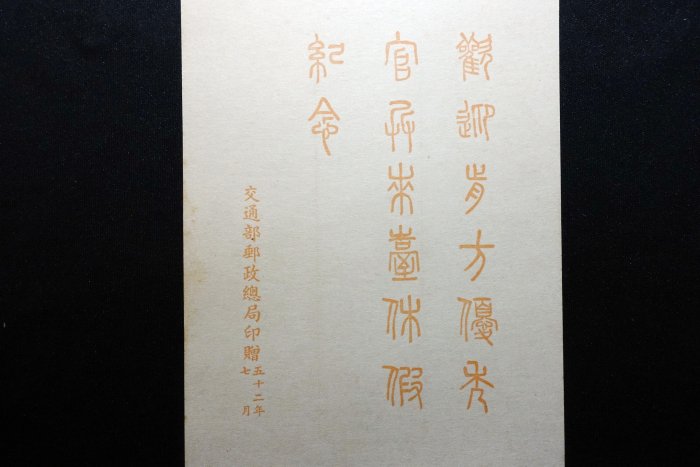 歡迎前方優秀
官兵來臺休假
紀念
交通部郵政總局印贈
五十二年
七月